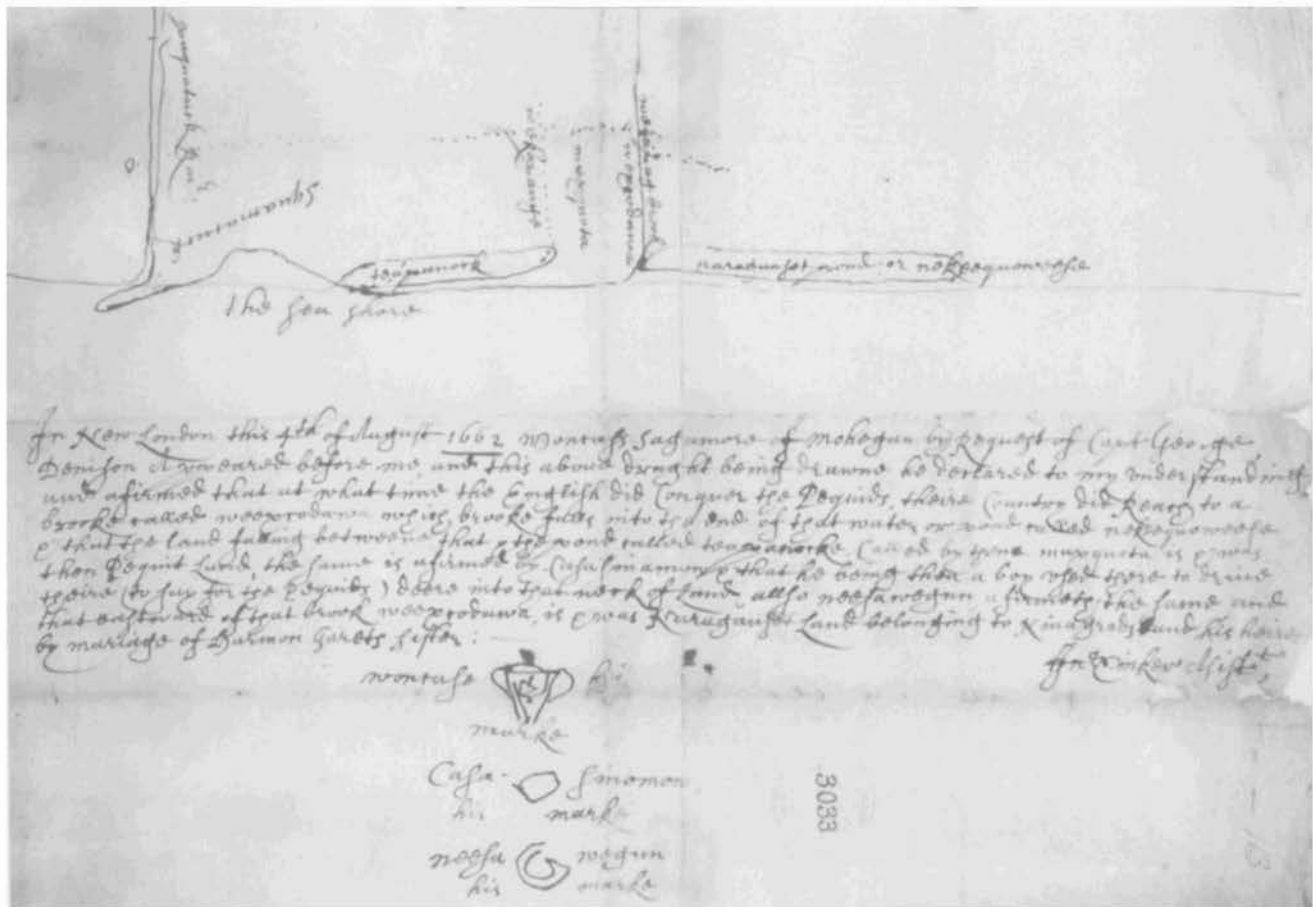 pauquatuck River
squamacutt
wekapauge
muxquata
weexcodawa
teapanock
naraganset pond or nekeequoweese
the sea shore
In New London this 4th of August 1662 Woncass Sagamore of Mohegan by Request of Capt George
Denison Appeared before me, and this above drught being drawne he declared to my understanding
and afirmed that at what time the English did Conquer the Pequids, theire Country did Reach to a
brooke called weexcodawa which brooke falls into the end of that water or pond called nekeequoweese
& that the land falling betweene that & the pond called teapanocke Called by them muxquata is & was
then Pequit Land, the same is afirmed by Casasinamon & that he being then a boy used there to drive
theire (to say for the Pequids) deere into that neck of land allso neesawegun afirmeth the same and
that eastward of that brook weexcodawa, is & was Naragansett Land belonging to and his heire
by mariage of Harmon Garets sister:
woncase his
marke
Casa- sinomon
his mark
neesa wegun
his marke
3033